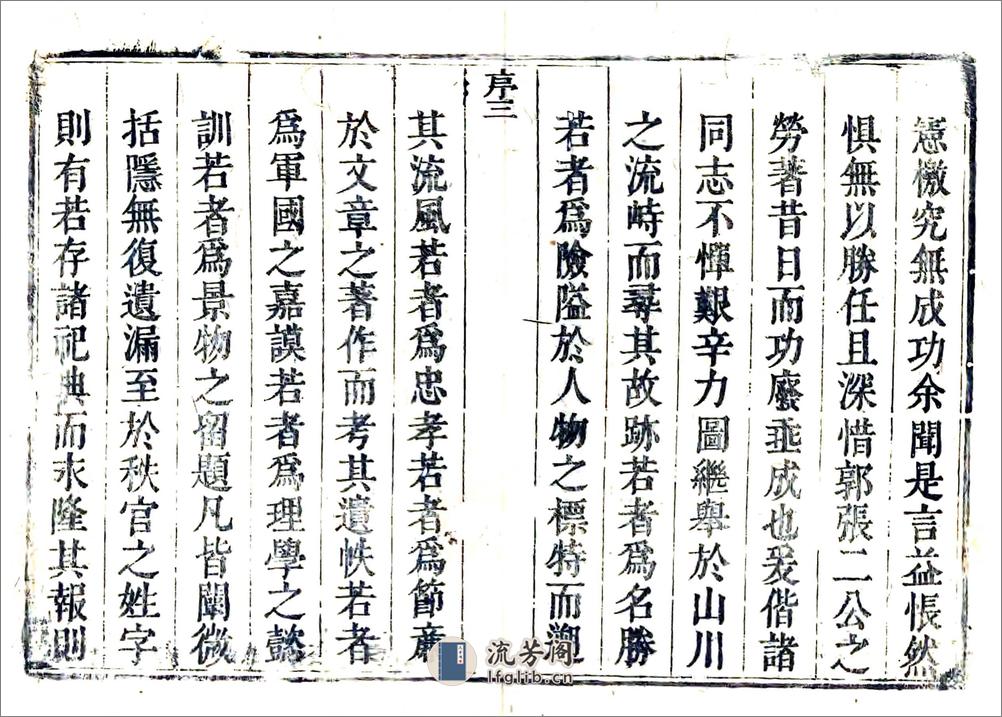 憲檄究無成功余聞是言益悵然
惧無以勝任且深惜郭張二公之
勞著昔日而功廢垂成也爰偕諸
同志不憚艱辛力圖繼舉於山川
之流峙而尋其故跡若者爲名勝
若者爲險隘於人物之標特而遡
序三
其流風若者爲忠孝若者爲節廉
於文章之著作而考其遺帙若者
爲軍國之嘉謨若者爲理學之懿
訓若者爲景物之留題凡皆闡微
括隱無復遺漏至於秩官之姓字
則有若存諸祀典而永隆其報則
流芳阁
lfglib.cn